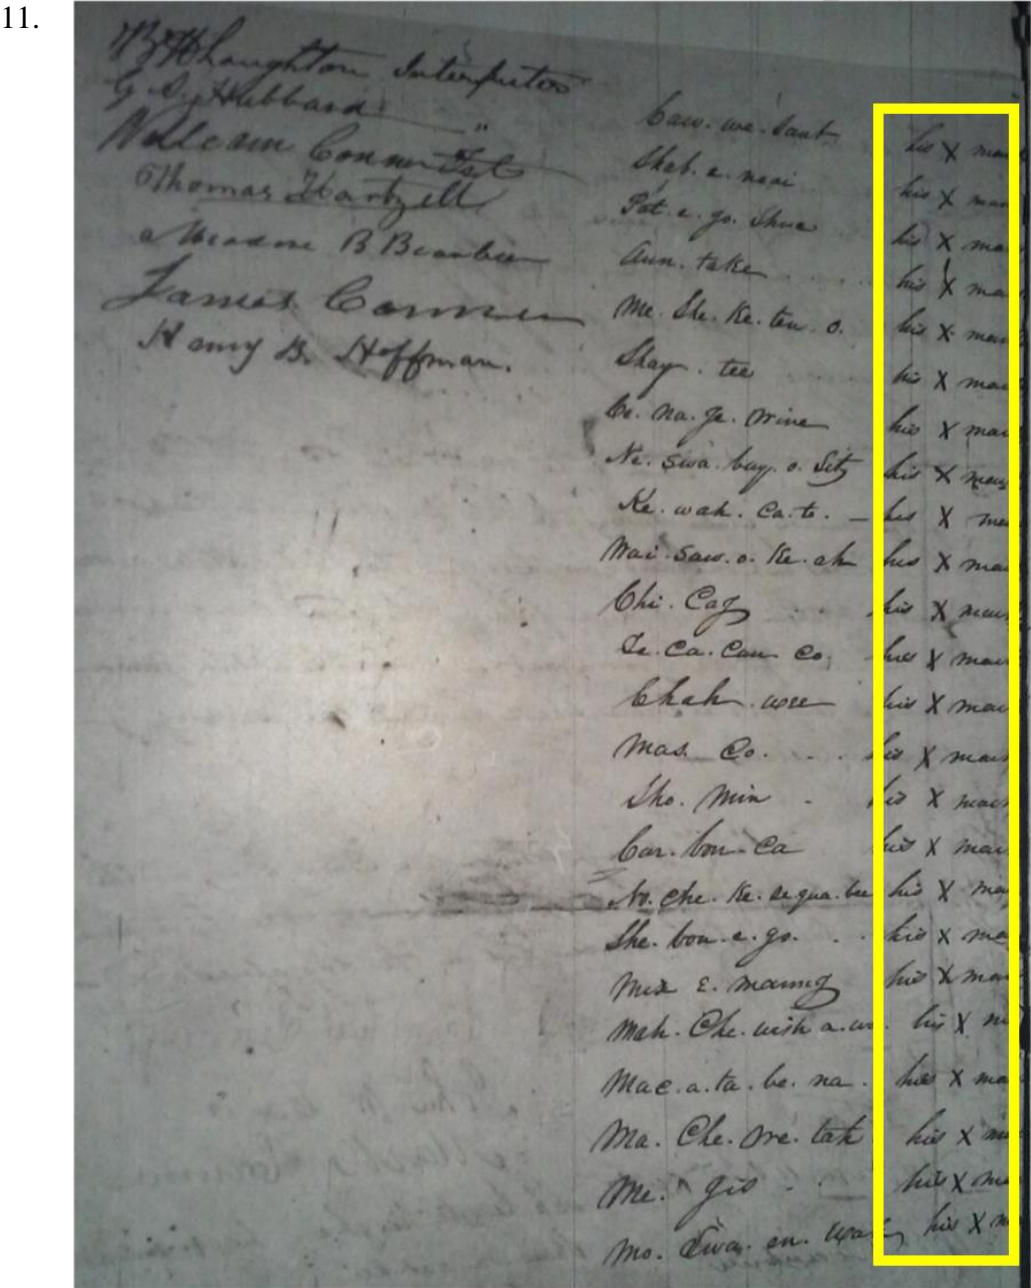 11.
Wm Haughton Interpreter
G. S. Hubbard "
William Conner Do
Thomas Hartzell
Meadore B Beaubien
James Conner
Henry B. Hoffman.
Caw. we. saut his X mar
Shab. e. nai his X mar
Pat. e. go. Shuc his X mar
Aun. take his X mar
Me. She. Ke. ten. o. his X mar
Shay. tee his X mar
Ce. na. ge. wine his X mar
Ne. swa. bay. o. Sity his X mar
Ke. wah. Ca. to. his X mar
Wai. saw. o. Ke. ah his X mar
Chi. Cag his X mar
Te. Ca. Cau Co, his X mar
Chah wee his X mar
Mas. Co. his X mar
Sho. min his X mar
Car. bon. Ca his X mar
No. Che. Ke. se qua. bee his X ma
She. bon. e. go. his X ma
Mix E. maung his X ma
Mah. Che. wish a. we. his X m
Mac. a. ta. be. na. his X ma
Ma. Che. we. tah his X m
Me. gis his X ma
Mo. Swa. en. wah, his X m